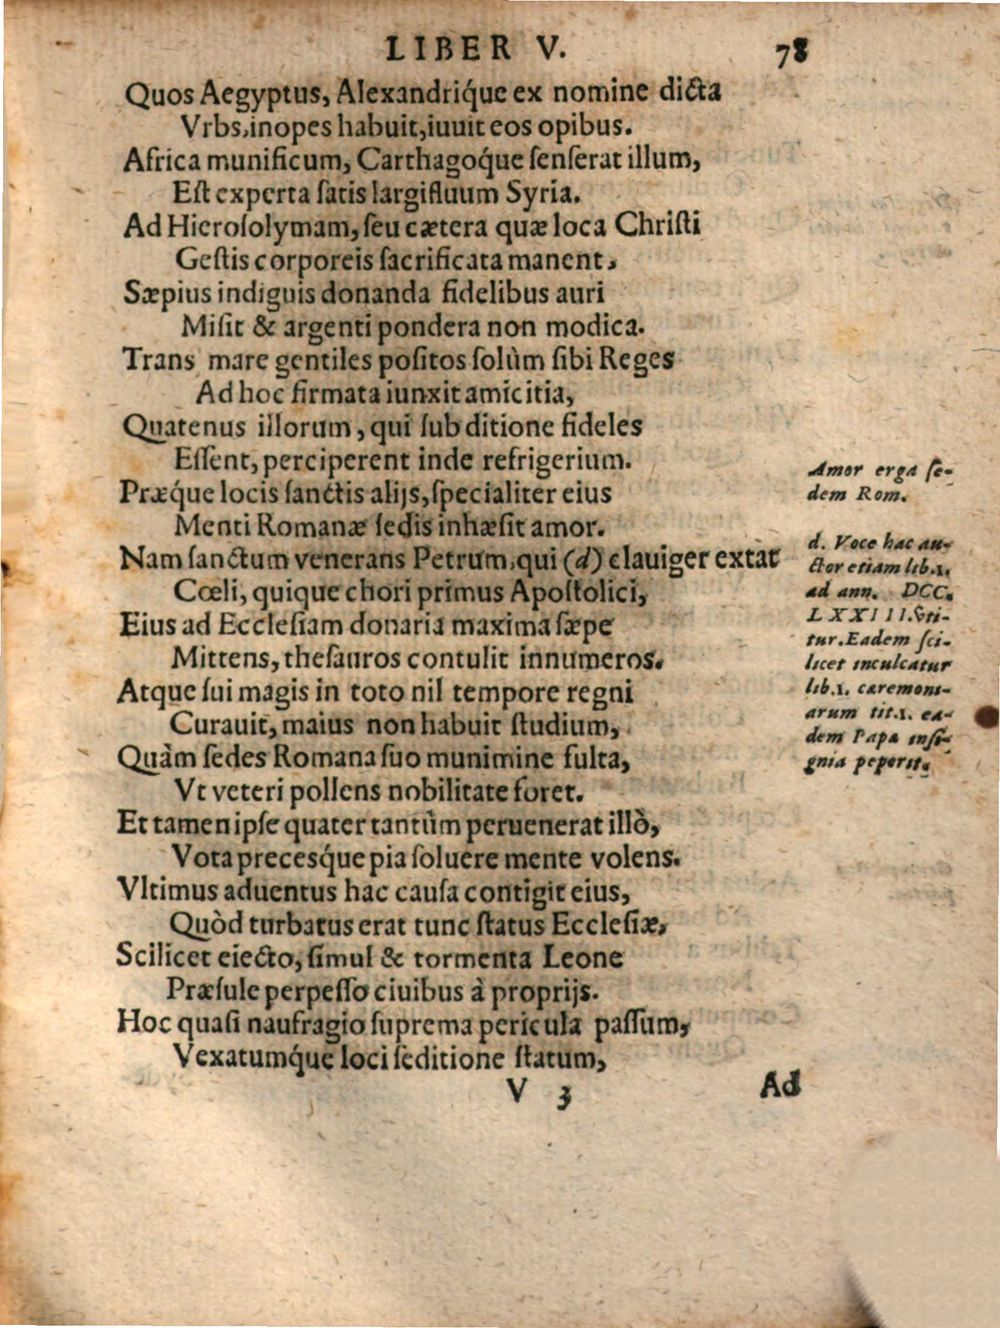 LIBER V. 78
Quos Aegyptus, Alexandriq́ue ex nomine dicta
Vrbs, inopes habuit, iuuit eos opibus.
Africa munificum, Carthagoq́ue ſenſerat illum,
Eſt experta ſatis largifluum Syria.
Ad Hieroſolymam, ſeu cætera quæ loca Chriſti
Geſtis corporeis ſacrificata manent,
Sæpius indiguis donanda fidelibus auri
Miſit & argenti pondera non modica.
Trans mare gentiles poſitos ſolùm ſibi Reges
Ad hoc firmata iunxit amicitia,
Quatenus illorum, qui ſub ditione fideles
Eſſent, perciperent inde refrigerium.
Præque locis ſanctis alijs, ſpecialiter eius
Menti Romanæ ſedis inhæſit amor.
Nam ſanctum venerans Petrum, qui (d) clauiger extat
Cœli, quique chori primus Apoſtolici,
Eius ad Eccleſiam donaria maxima ſæpe
Mittens, theſauros contulit innumeros.
Atque ſui magis in toto nil tempore regni
Curauit, maius non habuit ſtudium,
Quàm ſedes Romana ſuo munimine fulta,
Vt veteri pollens nobilitate foret.
Et tamen ipſe quater tantùm peruenerat illò,
Vota preceſq́ue pia ſoluere mente volens.
Vltimus aduentus hac cauſa contigit eius,
Quòd turbatus erat tunc ſtatus Eccleſiæ,
Scilicet eiecto, ſimul & tormenta Leone
Præſule perpeſſo ciuibus à proprijs.
Hoc quaſi naufragio ſuprema pericula paſſum,
Vexatumq́ue loci ſeditione ſtatum,
V 3 Ad
Amor erga ſe-
dem Rom.
d. Voce hac au-
ctor etiam lib.1.
ad ann. DCC.
LXXIIII. vti-
tur. Eadem ſci-
licet inculcatur
lib.1. cæremoni-
arum tit.1. ea-
dem Papæ inſi-
gnia peperit.